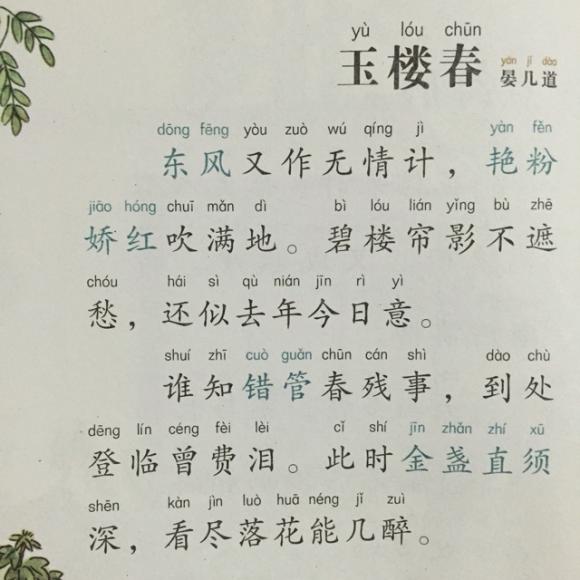 yù lóu chūn
玉楼春
yàn jī dào
晏几道
dōng fēng yòu zuò wú qíng jì yàn fěn
东风又作无情计，艳粉
jiāo hóng chuī mǎn dì bì lóu lián yǐng bù zhē
娇红吹满地。碧楼帘影不遮
chóu hái sì qù nián jīn rì yì
愁，还似去年今日意。
shuí zhī cuò guǎn chūn cán shì dào chù
谁知错管春残事，到处
dēng lín céng fèi lèi cǐ shí jīn zhǎn zhí xū
登临曾费泪。此时金盏直须
shēn kàn jìn luò huā néng jǐ zuì
深，看尽落花能几醉。